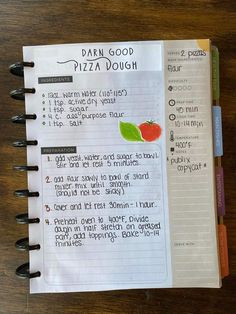 DARN GOOD
PIZZA DOUGH
SERVES 2 pizzas
flour
INGREDIENTS
warm water (110°-115°)
1 tsp. active dry yeast
1 tsp. sugar
4 c. all purpose flour
1 tsp. salt
40 min
400°F
publix
copycat
PREPARATION
1. add yeast, water, and sugar to bowl
and let rest 5 minutes.
2. add flour slowly to bowl of stand
mixer. mix until smooth.
(should not be sticky)
3. cover and let rest 30min - 1 hour.
4. Preheat oven to 400°F, Divide
dough in half stretch on greased
pan, add toppings. Bake 10-14
minutes
SERVE WITH